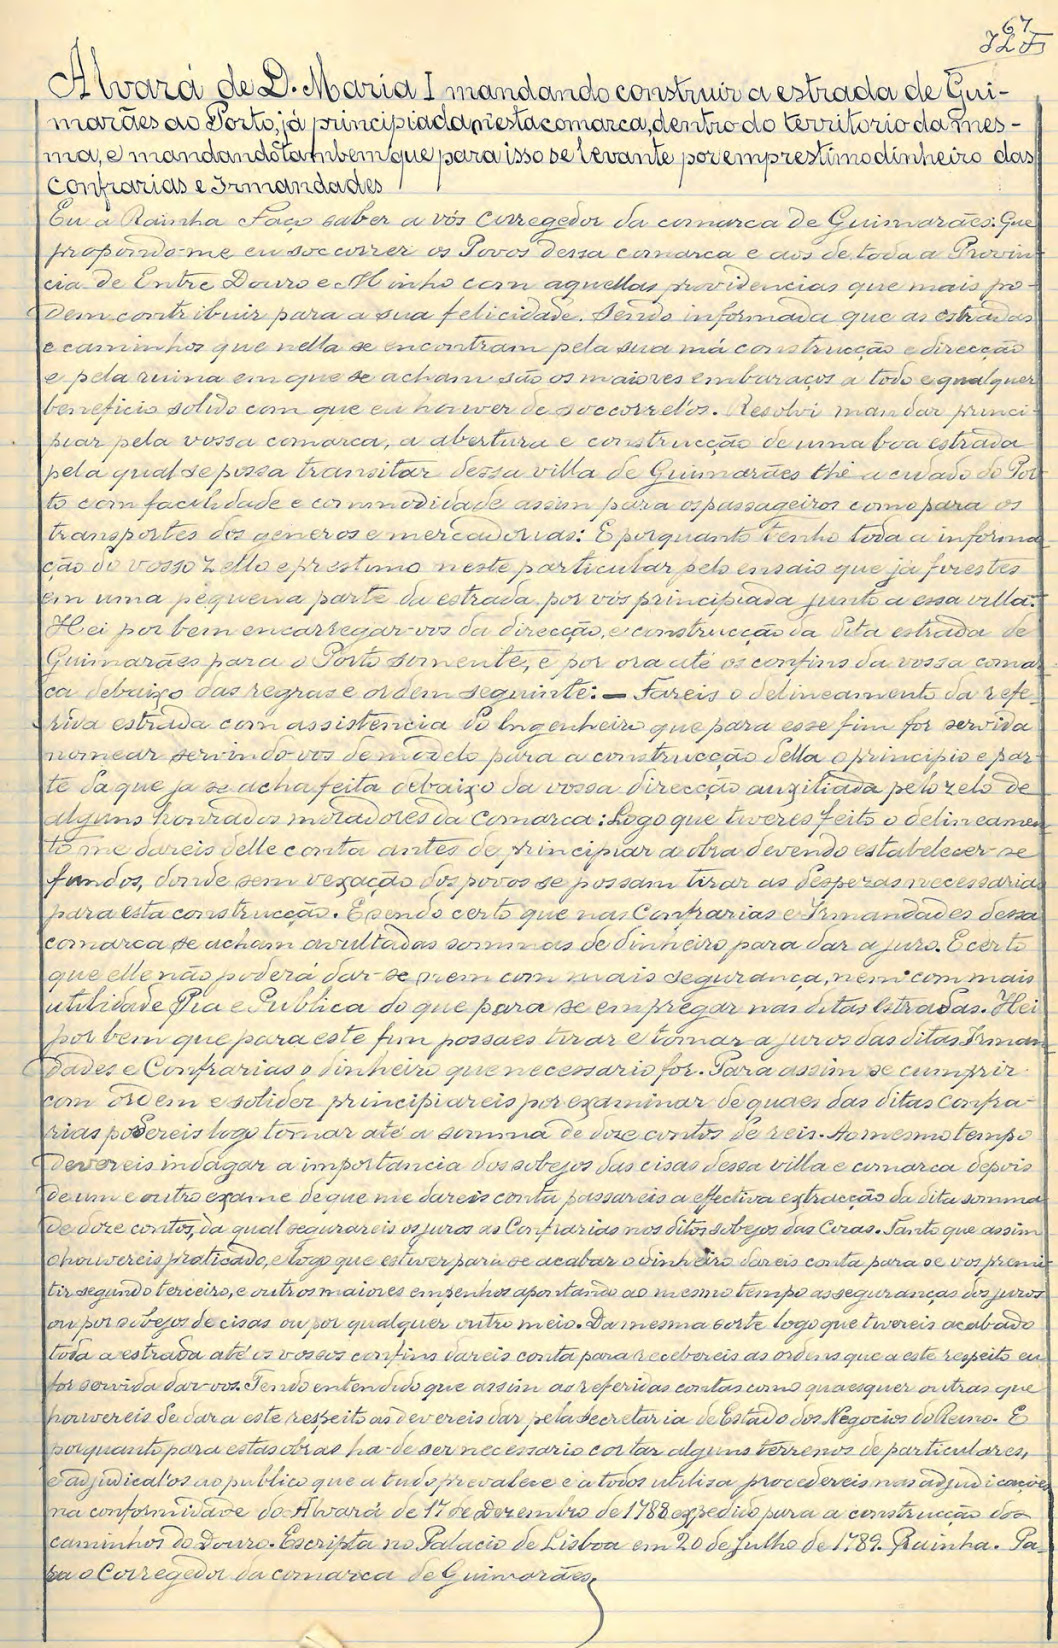 67
Alvará de D. Maria I mandando construir a estrada de Gui-
marães ao Porto, já principiada nesta comarca, dentro do territorio da mes-
ma, e mandando tambem que para isso se levante por emprestimo dinheiro das
Confrarias e Irmandades
Eu a Rainha Faço saber a vós Corregedor da comarca de Guimarães: Que
propondo-me eu soccorrer os Povos dessa comarca e aos de toda a Provin-
cia de Entre Douro e Minho com aquellas providencias que mais po-
dem contribuir para a sua felicidade. Sendo informada que as estradas
e caminhos que nella se encontram pela sua má construcção e direcção
e pela ruina em que se acham são os maiores embaraços a todo e qualquer
beneficio solido com que eu houver de soccorrel'os. Resolvi mandar princi-
piar pela vossa comarca, a abertura e construcção de uma boa estrada
pela qual se possa transitar dessa villa de Guimarães thé a cidade do Por-
to com facilidade e commodidade assim para os passageiros como para os
transportes dos generos e mercadorias: E porquanto tenho toda a informa-
ção do vosso zello e prestimo neste particular pelo ensaio que já fizestes
em uma pequena parte da estrada por vós principiada junto a essa villa:
Hei por bem encarregar-vos da direcção, e construcção da dita estrada de
Guimarães para o Porto somente, e por ora até os confins da vossa comar-
ca debaixo das regras e ordem seguinte: — Fareis o delineamento da refe-
rida estrada com assistencia do Engenheiro que para esse fim for servida
nomear servindo-vos de modelo para a construcção della o principio e par-
te da que ja se acha feita debaixo da vossa direcção auxiliada pelo zelo de
alguns honrados moradores da Comarca: Logo que tiveres feito o delineamen-
to me dareis delle conta antes de principiar a obra devendo estabelecer-se
fundos, donde sem vexação dos povos se possam tirar as despezas necessarias
para esta construcção. E sendo certo que nas Confrarias e Irmandades dessa
comarca se acham avultadas sommas de dinheiro para dar a juro. E certo
que elle não poderá dar-se, nem com mais segurança, nem com mais
utilidade Pia e Publica do que para se empregar nas ditas Estradas. Hei
por bem que para este fim possaes tirar e tomar a juros das ditas Irman-
dades e Confrarias o dinheiro que necessario for. Para assim se cumprir
com ordem e solidez principiareis por examinar de quaes das ditas Confra-
rias podereis logo tomar até a somma de doze contos de reis. Ao mesmo tempo
devereis indagar a importancia dos sobejos das cisas dessa villa e comarca depois
de um e outro exame de que me dareis conta passareis a effectiva extracção da dita somma
de doze contos, da qual segurareis os juros as Confrarias nos ditos sobejos das Cizas. Tanto que assim
o houvereis praticado, e logo que estiver para se acabar o dinheiro dareis conta para se vos premit-
tir segundo terceiro, e outros maiores empenhos apontando ao mesmo tempo as seguranças dos juros
ou por sobejos de cisas ou por qualquer outro meio. Da mesma sorte logo que tivereis acabado
toda a estrada até os vossos confins dareis conta para recebereis as ordens que a este respeito eu
for servida dar-vos. Tendo entendido que assim as referidas contas como quaesquer outras que
houvereis de dar a este respeito as devereis dar pela Secretaria de Estado dos Negocios do Reino. E
porquanto para estas obras ha-de ser necessario cortar alguns terrenos de particulares,
e adjudical'os ao publico que a tudo prevalece e a todos utilisa procedereis nas adjudicações
na conformidade do Alvará de 17 de Dezembro de 1788 expedido para a construcção dos
caminhos do Douro. Escripta no Palacio de Lisboa em 20 de Julho de 1789. Rainha. Pa-
ra o Corregedor da comarca de Guimarães